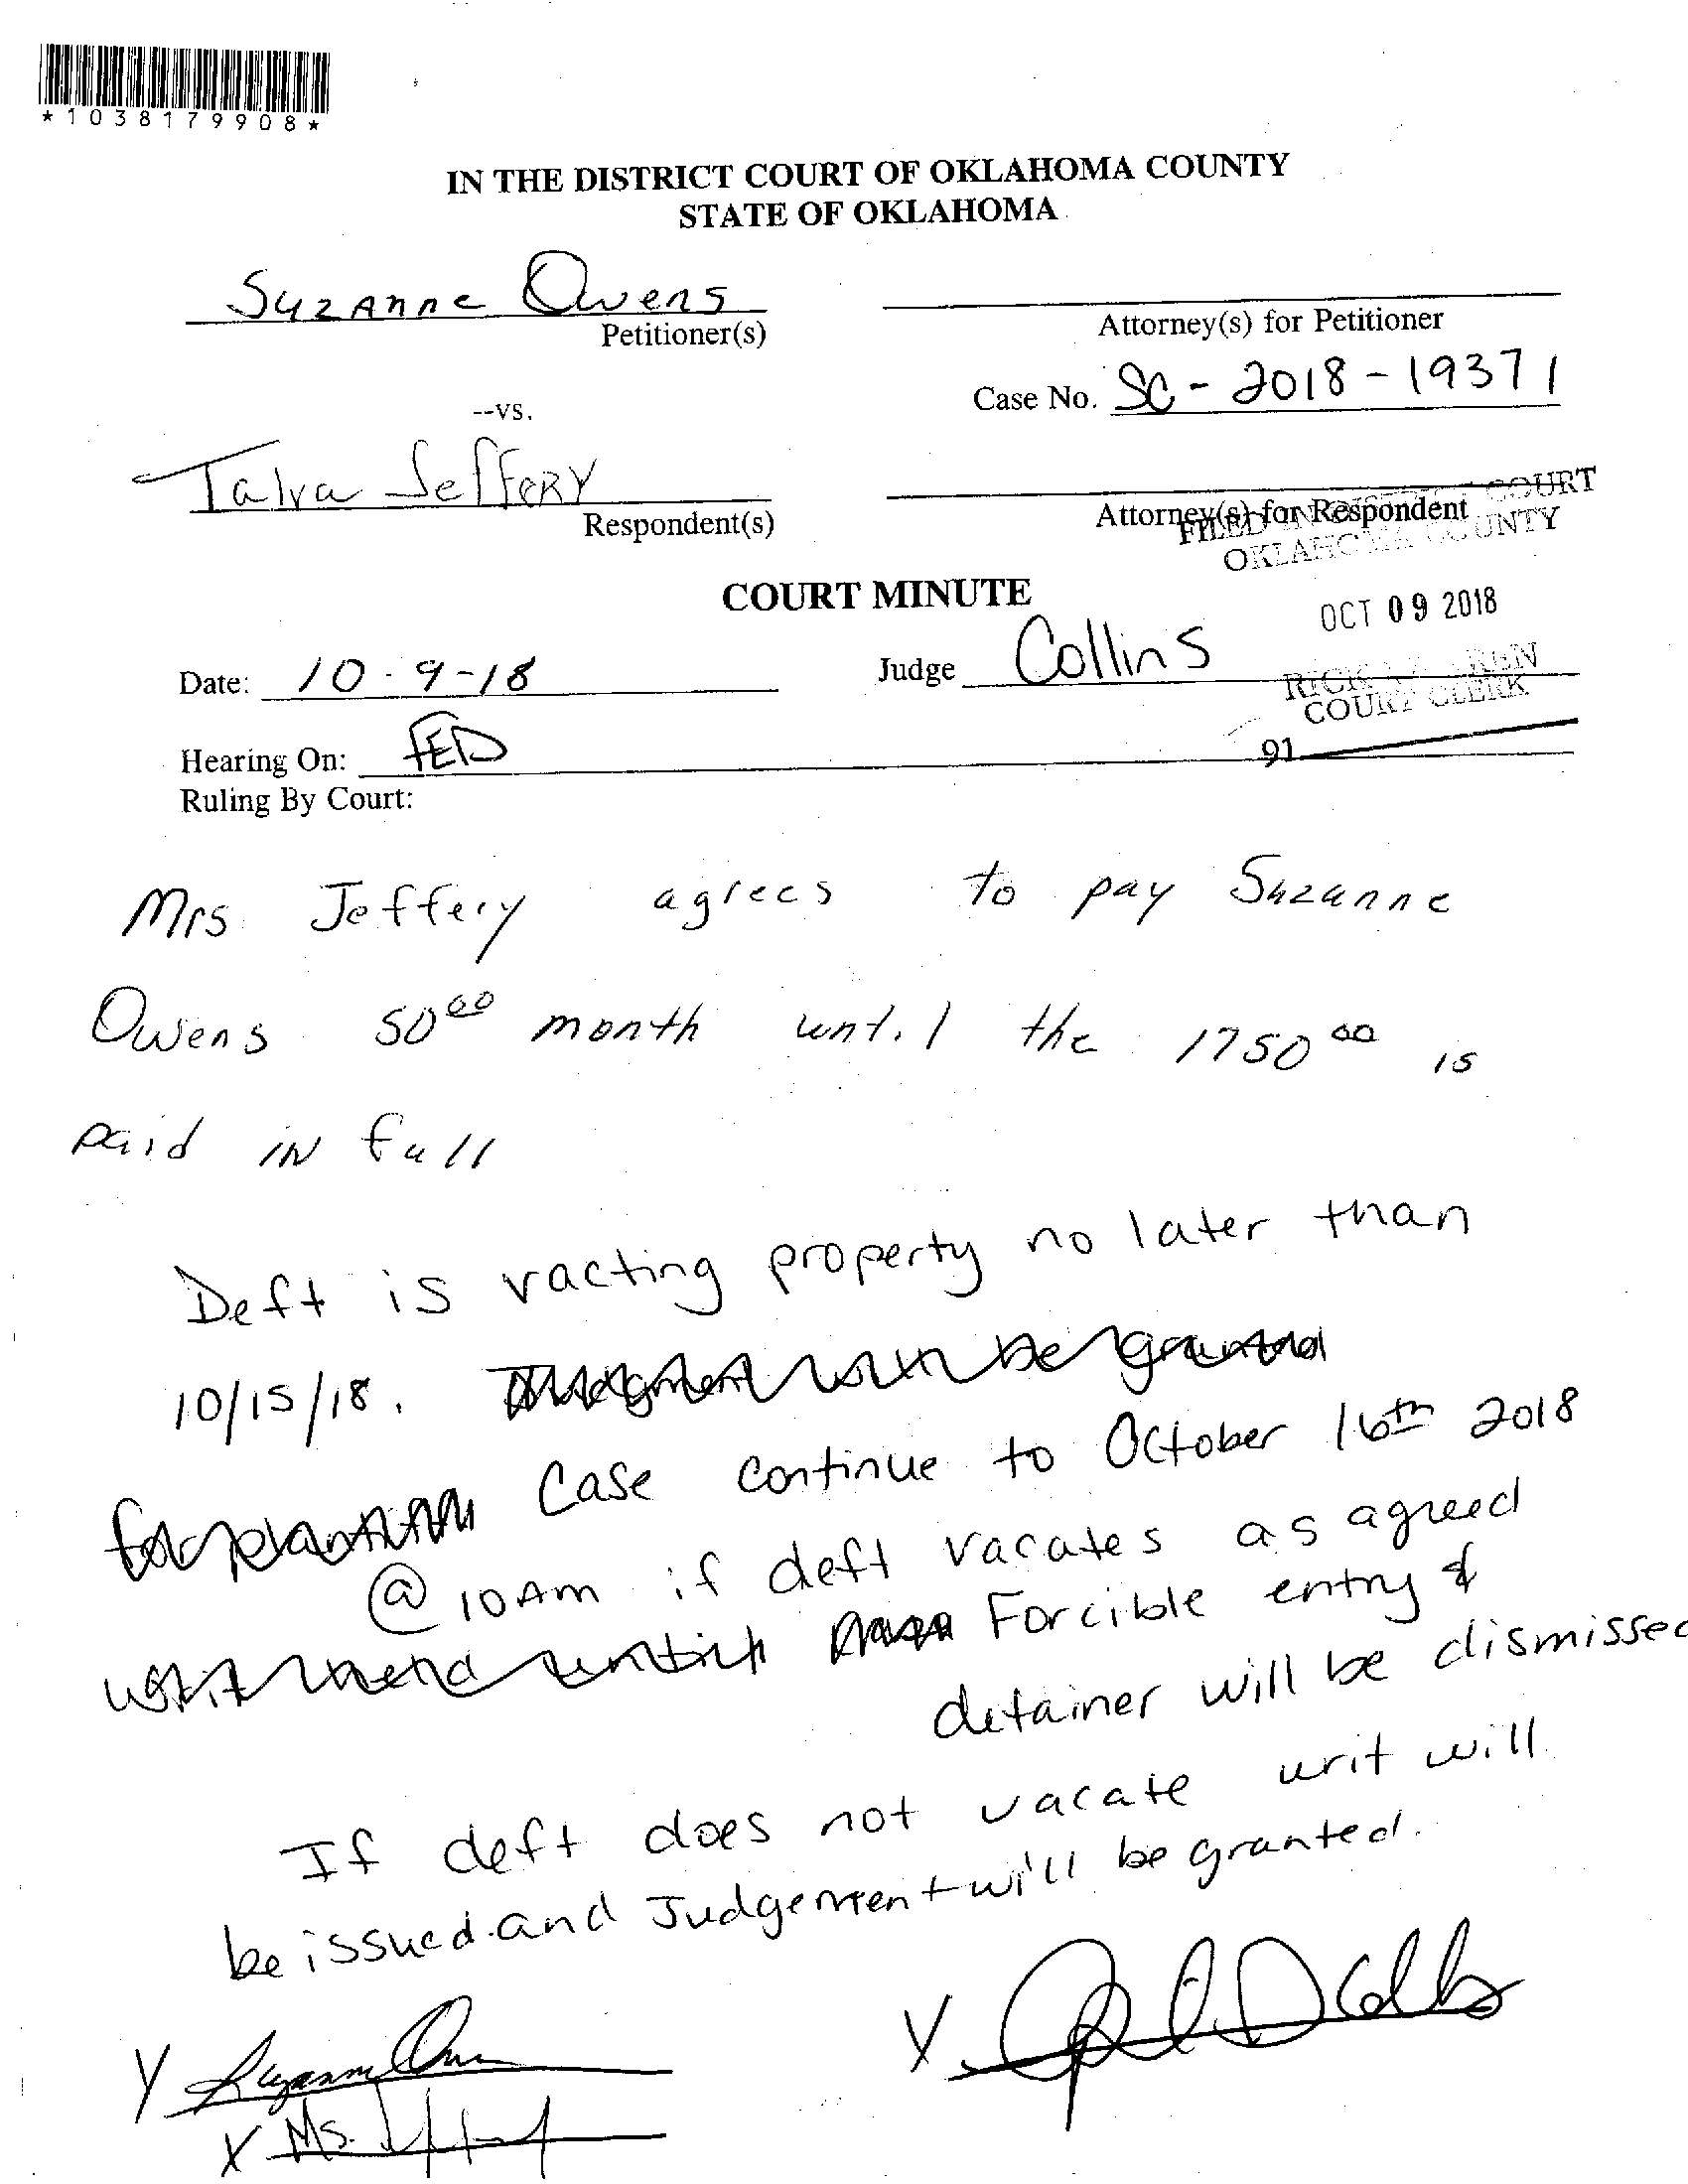 *1038179908*
IN THE DISTRICT COURT OF OKLAHOMA COUNTY
STATE OF OKLAHOMA
Suzanne Owens
Petitioner(s)
Attorney(s) for Petitioner
Case No. SC-2018-19371
--vs.
Talva Jeffery
Respondent(s)
Attorney(s) for Respondent
FILED IN DISTRICT COURT
OKLAHOMA COUNTY
COURT MINUTE
OCT 09 2018
Date: 10-9-18
Judge Collins
COURT CLERK
Hearing On: FED
91
Ruling By Court:
Mrs Jeffery agrees to pay Suzanne
Owens 50 00 month until the 1750 00 is
paid in full
Deft is vacting property no later than
10/15/18. Judgment will be granted
for plaintiff Case continue to October 16th 2018
@ 10 AM if deft vacates as agreed
writ held until Forcible entry &
detainer will be dismissed
If deft does not vacate writ will
be issued and Judgement will be granted.
X Suzanne Owens
X
X Ms.